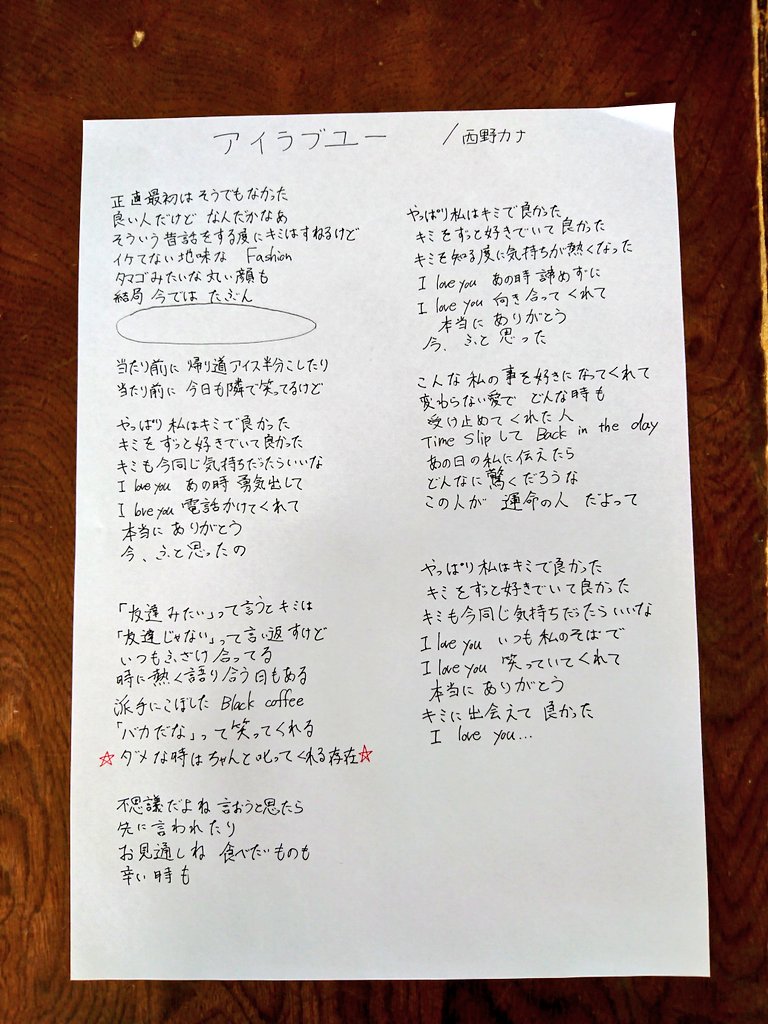 アイラブユー /西野カナ
正直最初はそうでもなかった
良い人だけど なんだかなあ
そういう昔話をする度にキミはすねるけど
イケてない地味な Fashion
タマゴみたいな丸い顔も
結局 今では たぶん
当たり前に 帰り道アイス半分こしたり
当たり前に 今日も隣で笑ってるけど
やっぱり 私はキミで良かった
キミを ずっと好きでいて良かった
キミも今同じ気持ちだったらいいな
I love you あの時 勇気出して
I love you 電話かけてくれて
本当に ありがとう
今、ふと思ったの
「友達みたい」って言うとキミは
「友達じゃない」って言い返すけど
いつもふざけ合ってる
時に熱く語り合う日もある
派手にこぼした Black coffee
「バカだな」って笑ってくれる
☆ダメな時はちゃんと叱ってくれる存在☆
不思議だよね 言おうと思たら
先に言われたり
お見通しね 食べたいものも
辛い時も
やっぱり私はキミで良かった
キミをずっと好きでいて良かった
キミを知る度に気持ちが熱くなった
I love you あの時 諦めずに
I love you 向き合ってくれて
本当に ありがとう
今、ふと 思った
こんな私の事を好きになってくれて
変わらない愛で どんな時も
受け止めてくれた人
Time Slipして Back in the day
あの日の私に伝えたら
どんなに驚くだろうな
この人が 運命の人 だよって
やっぱり私はキミで良かった
キミをずっと好きでいて良かった
キミも今同じ気持ちだったらいいな
I love you いつも私のそばで
I love you 笑っていてくれて
本当に ありがとう
キミに出会えて 良かった
I love you...